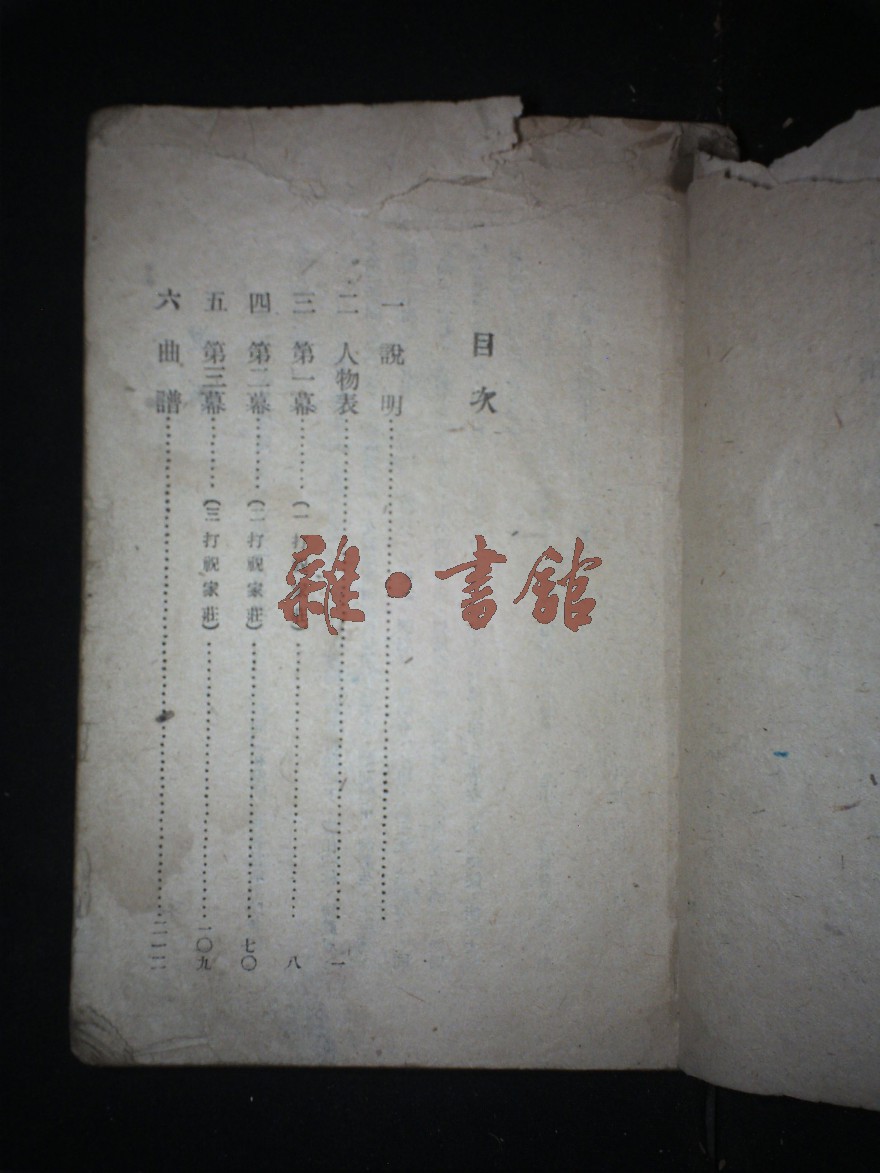 目次
一 說明……
二 人物表……一
三 第一幕……(一打……八
四 第二幕……(二打祝家莊)……七〇
五 第三幕……(三打祝家莊)……一〇九
六 曲譜……
雜•書館